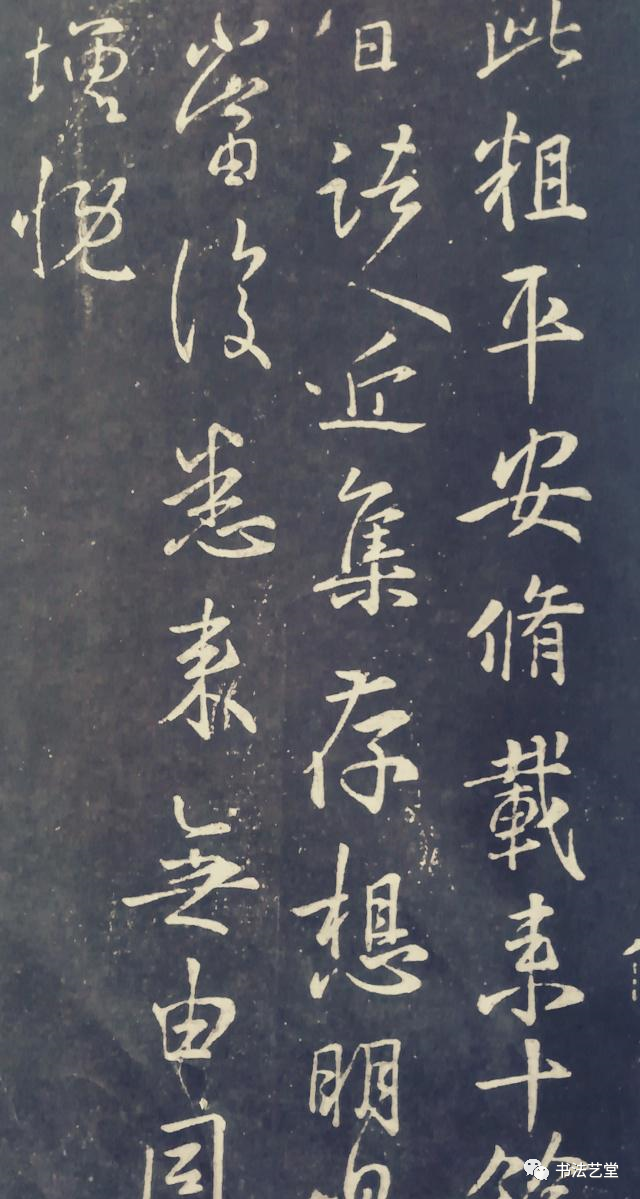 此粗平安脩載来十餘
日諸人近集存想明日
當復悉来無由同
增慨
书法艺堂